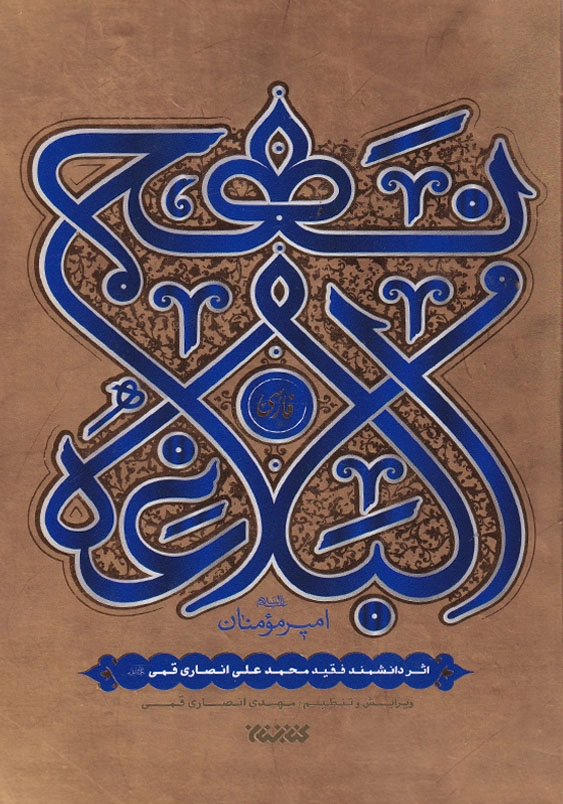 نهج
البلاغه
فارسی
علیه‌السلام
امیرمؤمنان
اثر دانشمند فقید محمد علی انصاری قمی
ویرایش و تنظیم : مهدی انصاری قمی
کتابستان